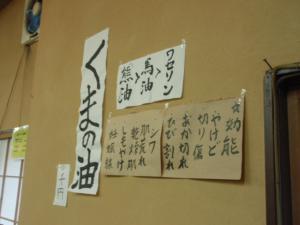 ワセリン
馬油
熊油
☆効能
やけど
切り傷
あか切れ
ひび割れ
シワ
肌荒れ
乾燥肌
しもやけ
妊娠線
くまの油
千円